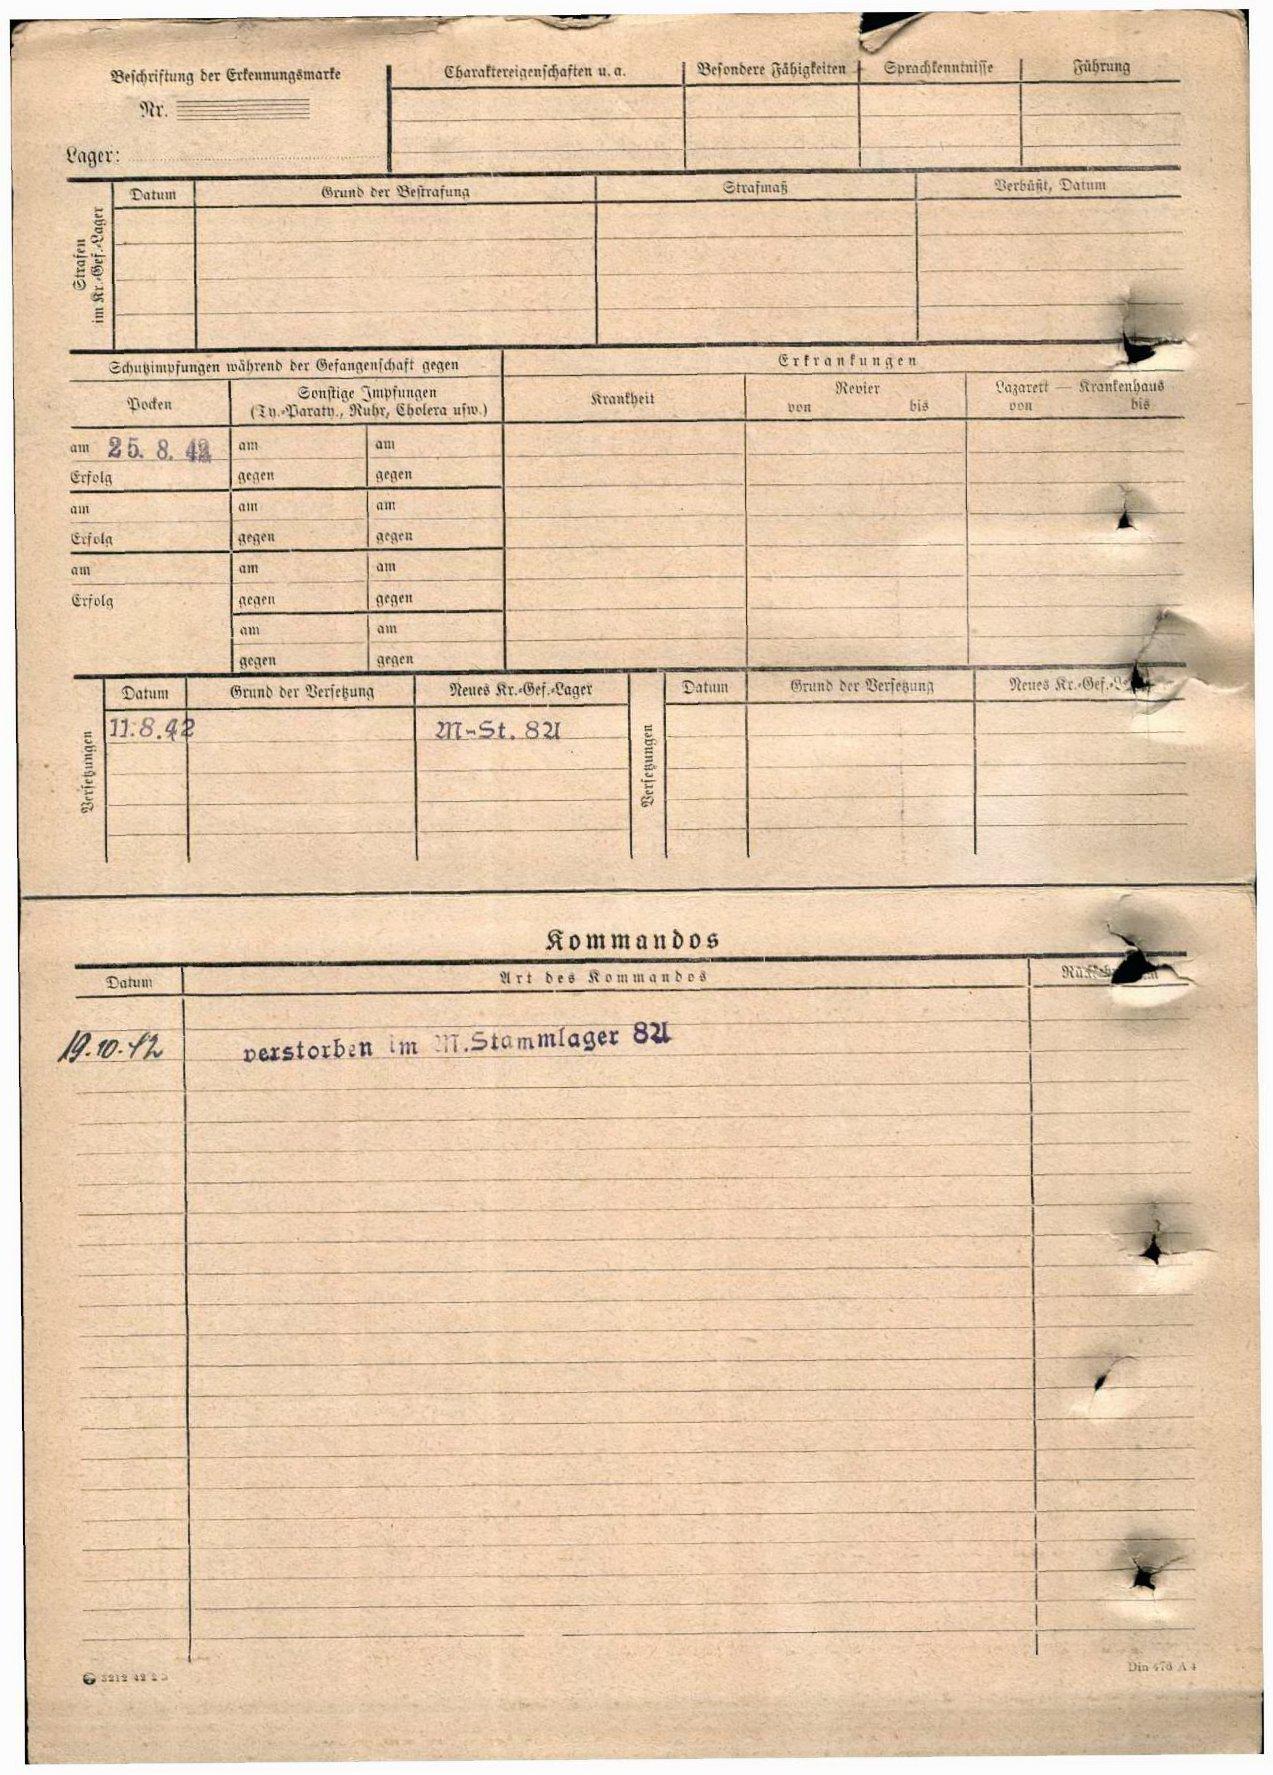 Beschriftung der Erkennungsmarke
Nr.
Lager:
Charaktereigenschaften u. a.
Besondere Fähigkeiten
Sprachkenntnisse
Führung
Strafen
im Kr.-Gef.-Lager
Datum
Grund der Bestrafung
Strafmaß
Verbüßt, Datum
Schutzimpfungen während der Gefangenschaft gegen
Erkrankungen
Pocken
Sonstige Impfungen
(Ty.-Paraty., Ruhr, Cholera usw.)
Krankheit
Revier
von bis
Lazarett — Krankenhaus
von bis
am 25. 8. 42 am am
Erfolg gegen gegen
am am am
Erfolg gegen gegen
am am am
Erfolg gegen gegen
am am
gegen gegen
Versetzungen
Datum Grund der Versetzung Neues Kr.-Gef.-Lager
11.8.42 M-St. 8A
Versetzungen
Datum Grund der Versetzung Neues Kr.-Gef.-
Kommandos
Datum Art des Kommandos
19.10.42 verstorben im M.Stammlager 8A
Din 476 A 4